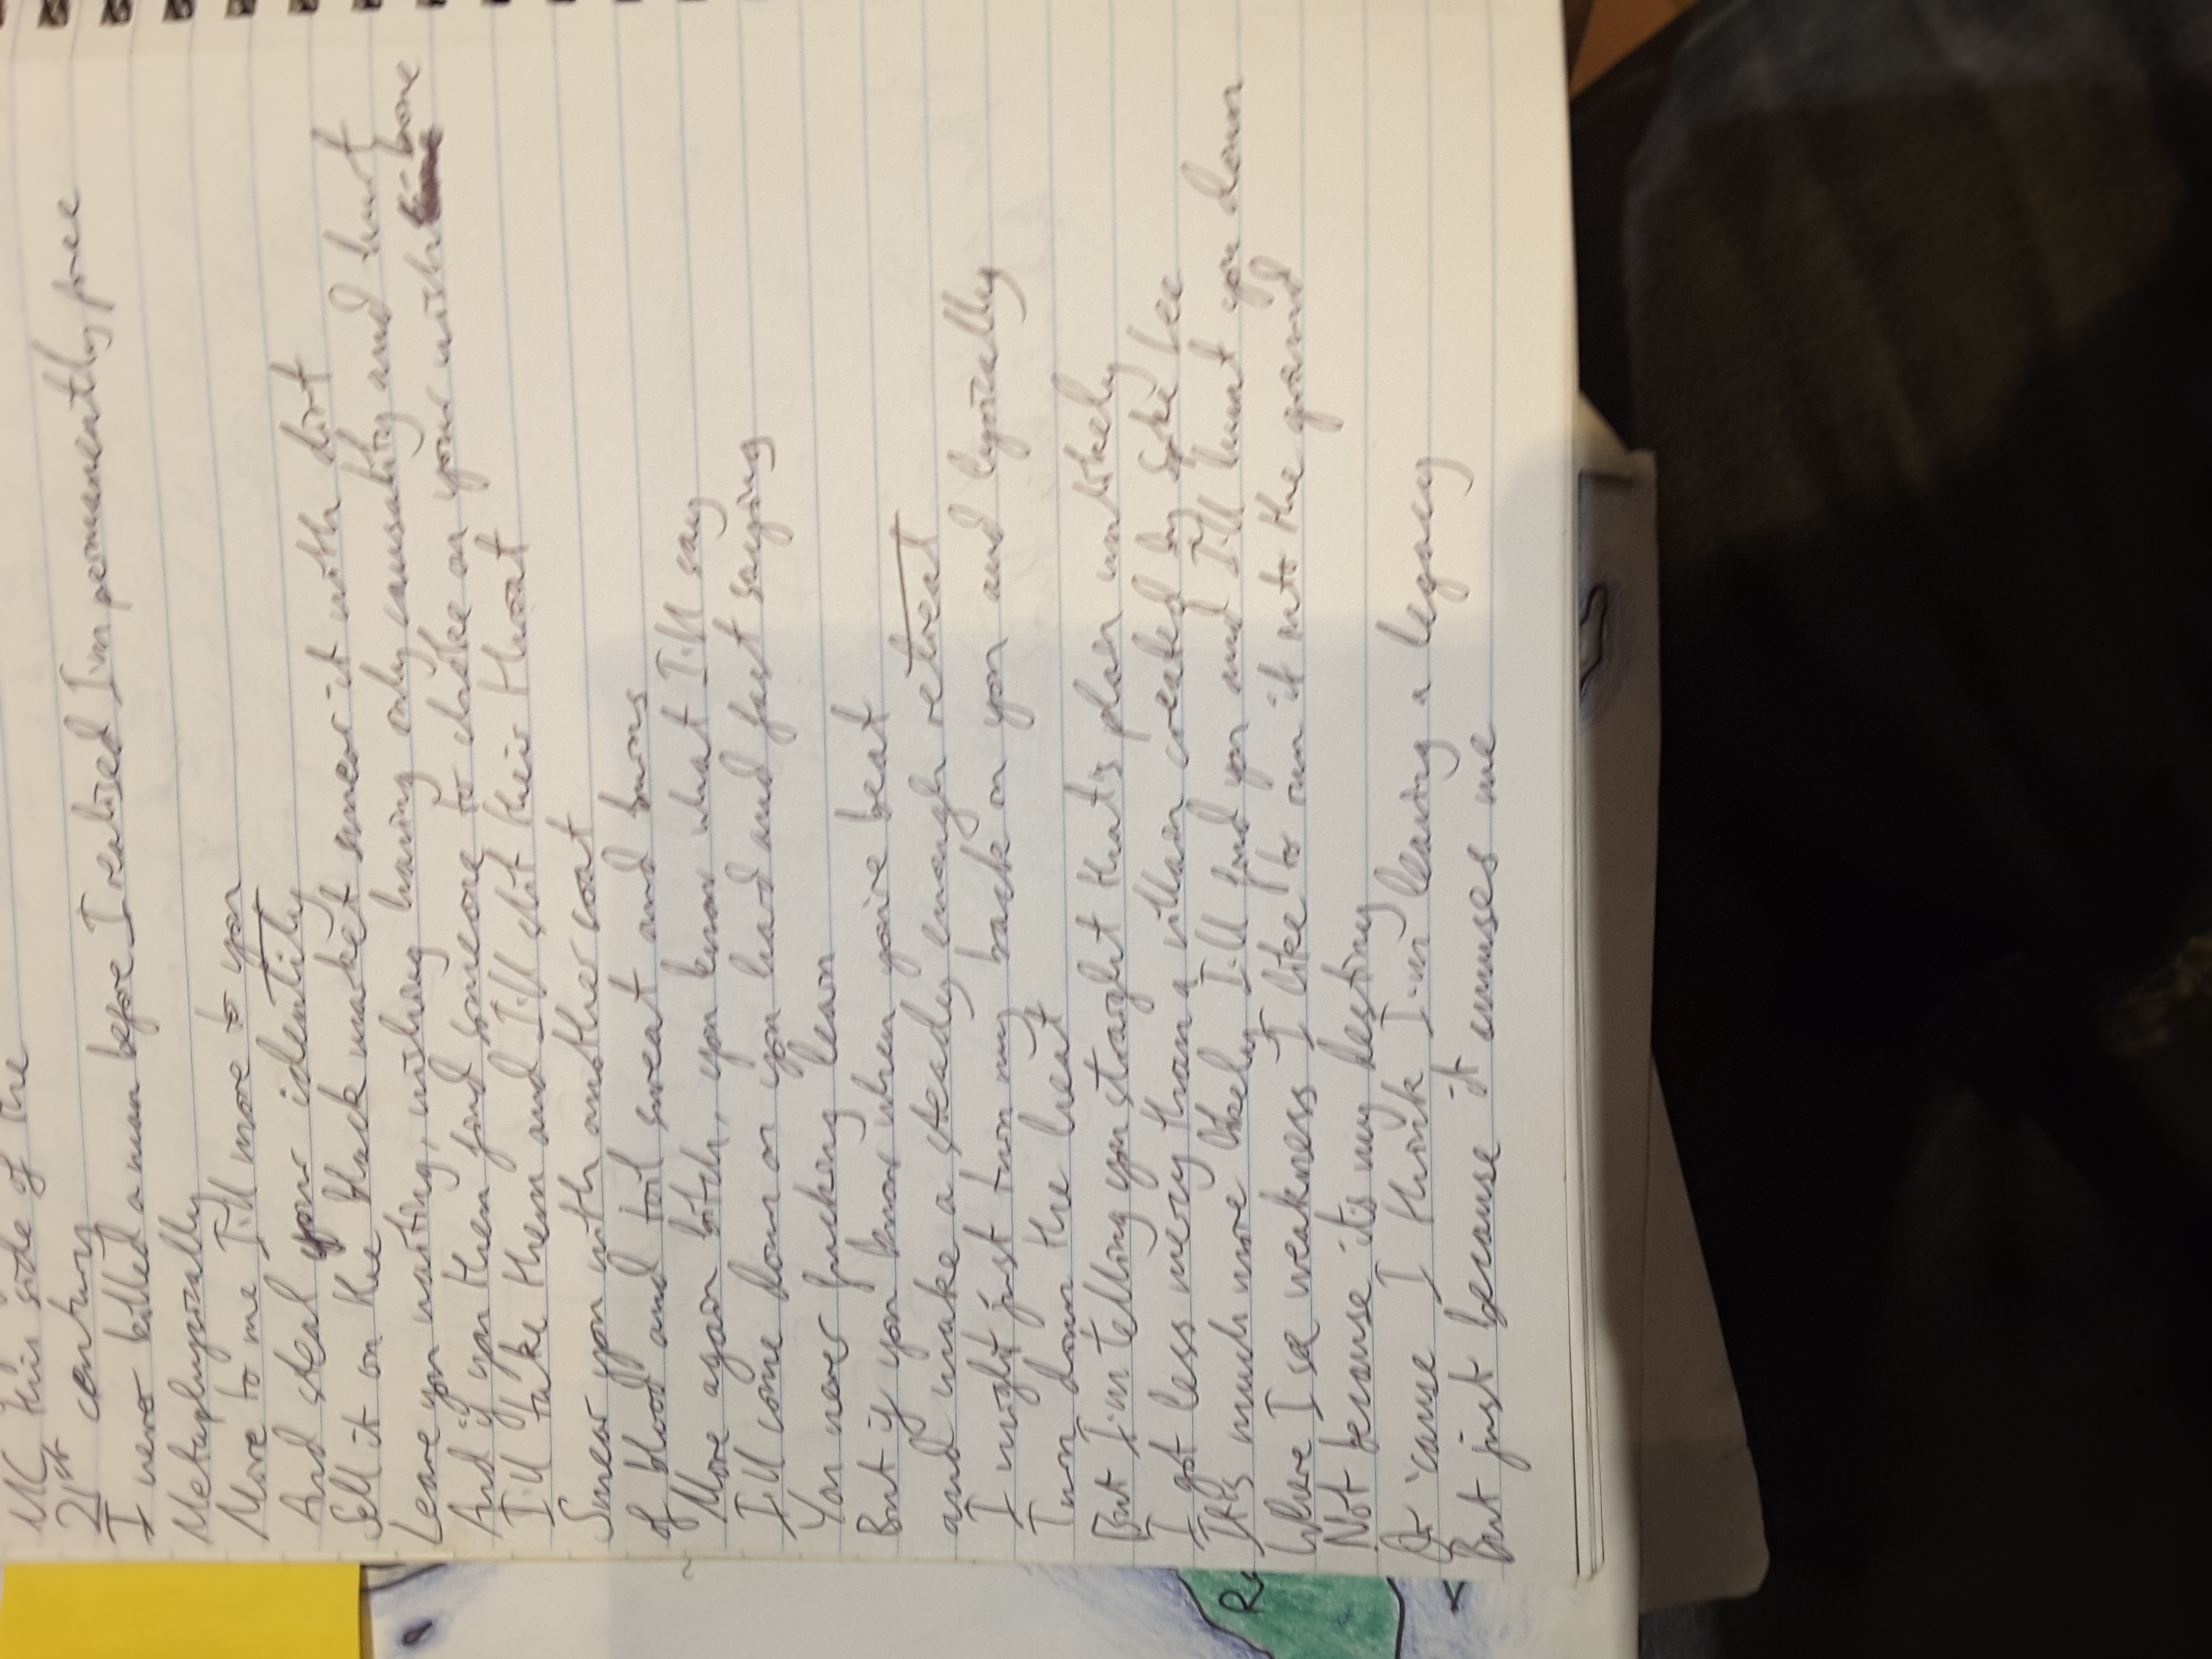 MC this side of the
21st century
I never killed a man before I realised I'm permanently free
Metaphysically
Move to me I'll move to you
And steal your identity
Sell it on the black market smear it with dirt
Leave you waiting, wishing having only causality and hurt
And if you then find someone to choke on your wish-bone
I'll take them and I'll slit their throat
Smear you with another coat
of blood and toil sweat and burns
Move again bitch, you know what I'll say
I'll come down on you hard and fast saying
You never fucking learn
But if you know when you're beat
and make a steady enough retreat
I might just turn my back on you and lyrically
Turn down the heat
But I'm telling you straight that's plain unlikely
I got less mercy than a villain created by Spike Lee
It's much more likely I'll find you and I'll hunt you down
Where I see weakness I like to run it into the ground
Not because it's my destiny
Or 'cause I think I'm leaving a legacy
But just because it amuses me